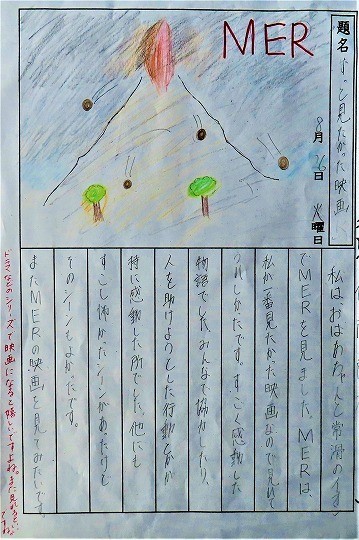 MER
題名 ずっと見たかった映画に
8月26日 火曜日
私はおばあちゃんと常滑のイオン
でMERを見ました。MERは、
私が一番見たかった映画なので見れて
うれしかたです。すごく感動した
物語でした。みんなで協力したり、
人を助けようとした行動とかが
特に感動した所でした。他にも
すこし怖かったシーンがあたけど
そのシーンもよかたです。
またMERの映画を見てみたいです。
ドラマなどのシリーズで映画になると嬉しいですよね。また見れるといい
ですね